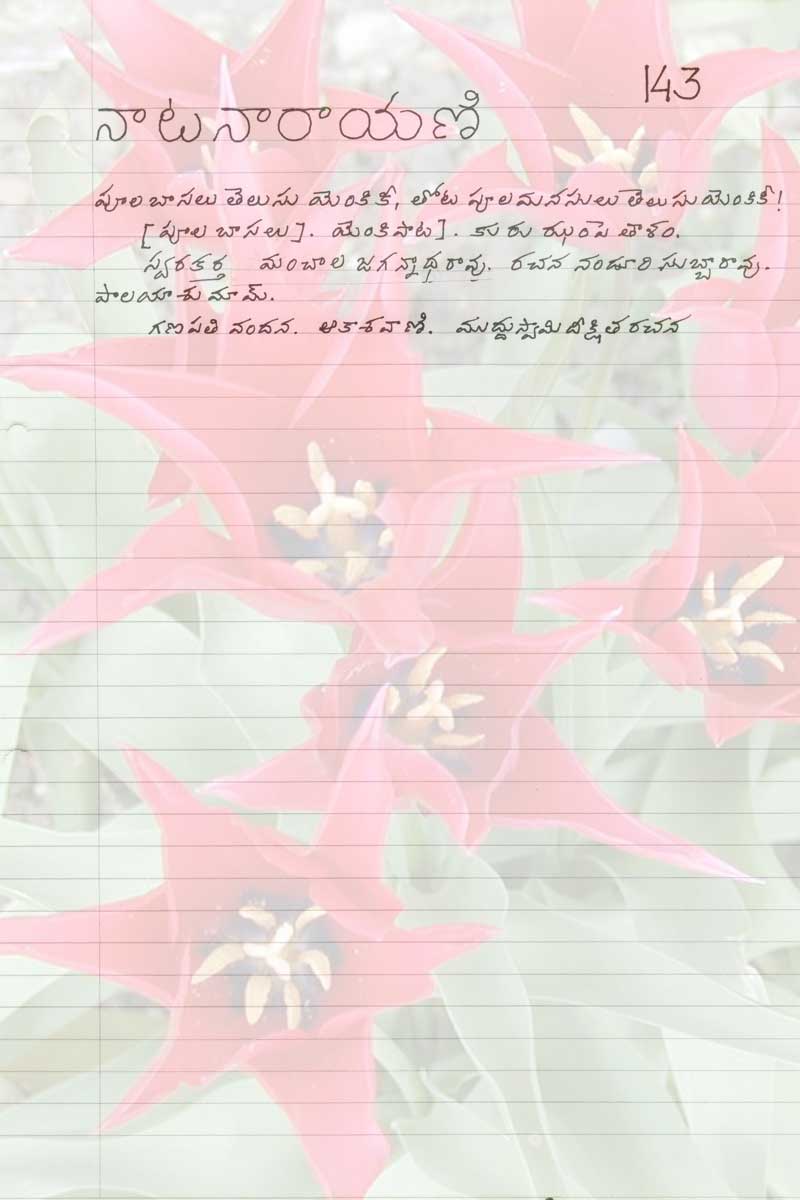 143
నాటనారాయణి
పూలబాసలు తెలుసు యెంకికీ, తోట పూలమనసులు తెలుసుయెంకికీ!
[పూల బాసలు]. యెంకిపాట]. కురు ఝంపె తాళం.
స్వరకర్త మంచాల జగన్నాథరావు. రచన నండూరి సుబ్బారావు.
పాలయాశు మామ్.
గణపతి వందన. ఆకాశవాణి. ముద్దుస్వామి దీక్షిత రచన